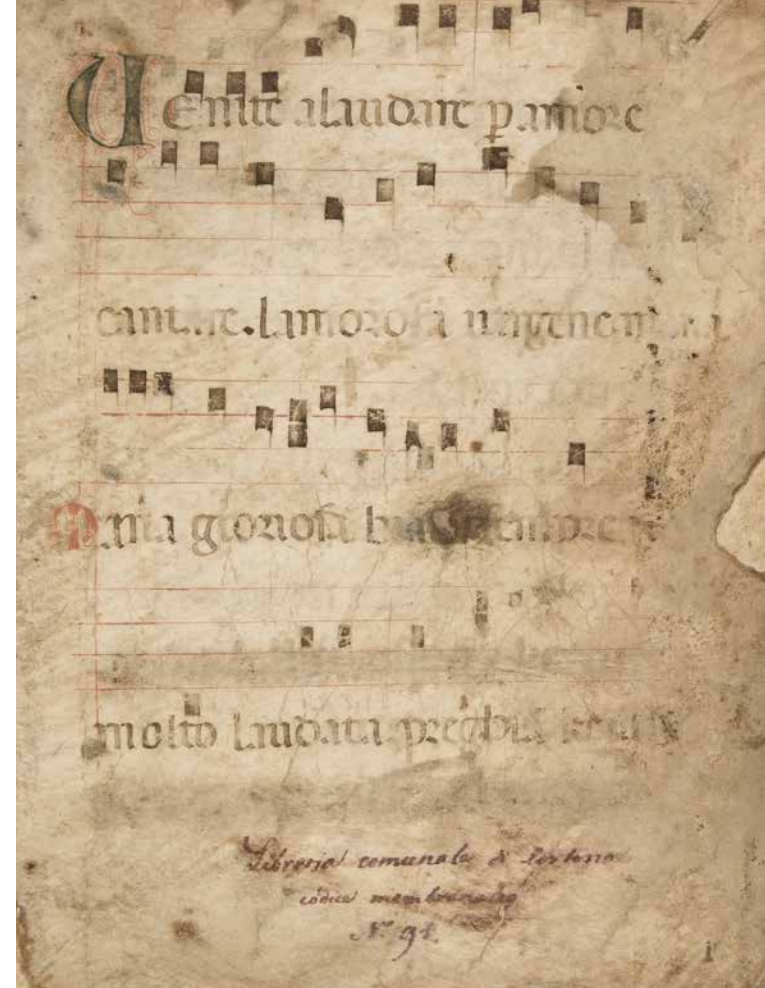 Uenite alaudare p amore
cantare. lamorosa uergene maria
Maria gloriosa biata sempre
molto laudata preghiā
Libreria comunale di Cortona
codice membranaceo
N.º 91.